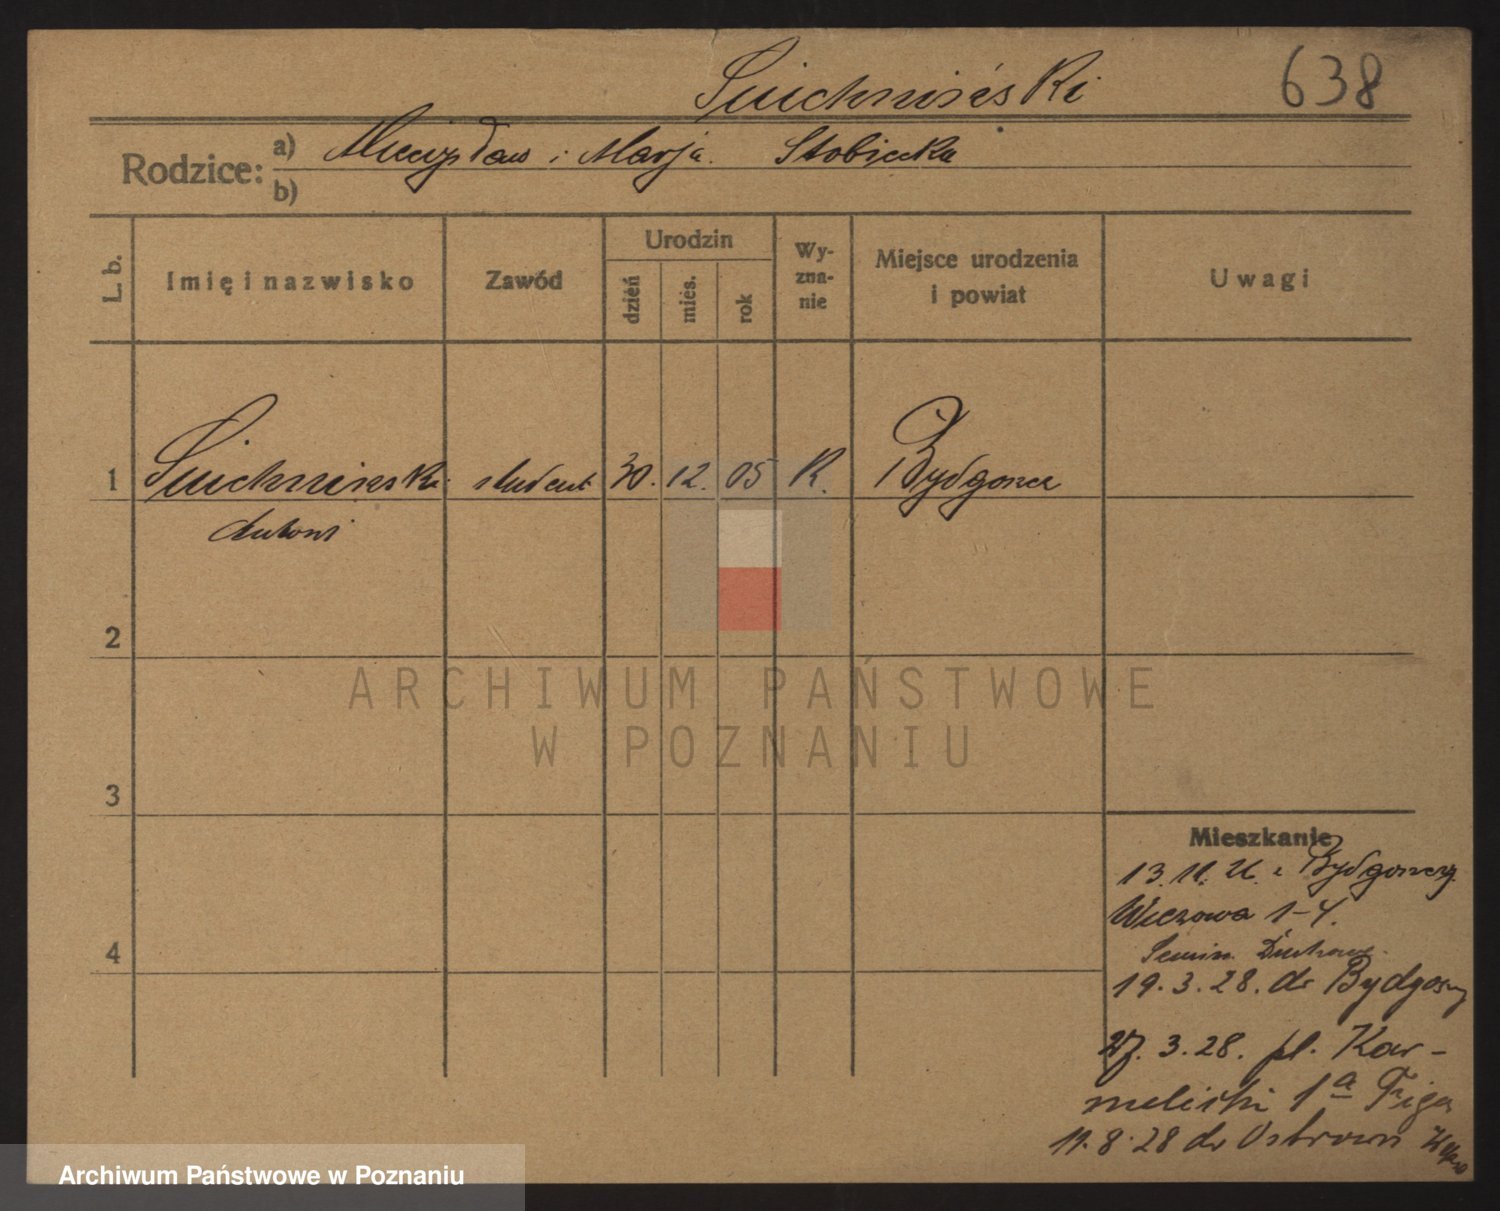 Suichniński 638
Rodzice:
a) Mieczysław i Marja. Stobiecka
b)
L. b.
Imię i nazwisko
Zawód
Urodzin
dzień
mies.
rok
Wy-
zna-
nie
Miejsce urodzenia
i powiat
Uwagi
1 Suichniński student 30. 12. 05 K. Bydgoszcz
Antoni
2
ARCHIWUM PAŃSTWOWE
W POZNANIU
3
Mieszkanie
13.11.26. z Bydgoszczy
Wieżowa 1-4.
Semin. Duchowe.
19.3.28. do Bydgoszczy
27.3.28. pl. Kar-
melicki 1a Figa
11.8.28 do Ostrowa
4
Archiwum Państwowe w Poznaniu